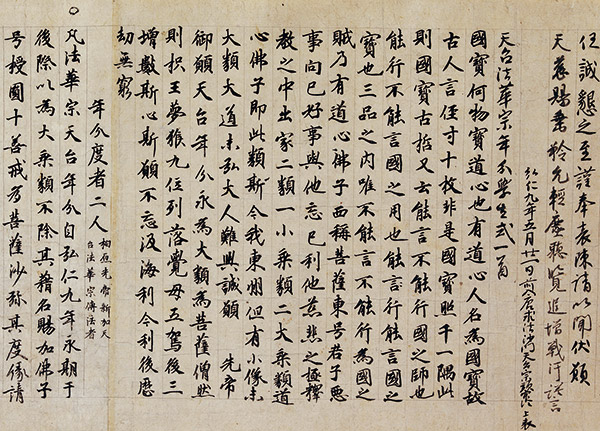 任誠懇之至謹奉表陳請以聞伏願
天慈賜垂矜允輕塵聽覽追增戰汗謹言
弘仁九年五月廿一日前入唐求法沙門天台宗最澄上表
天台法華宗年分學生式一首
國寶何物寶道心也有道心人名為國寶故
古人言径寸十枚非是國寶照千一隅此
則國寶古哲又云能言不能行國之師也
能行不能言國之用也能行能言國之
寶也三品之內唯不能言不能行為國之
賊乃有道心佛子西稱菩薩東号君子悪
事向己好事與他忘己利他慈悲之極釋
教之中出家二類一小乘類二大乘類道
心佛子即此類斯今我東州但有小像未
大類大道未弘大人難興誠願 先帝
御願天台年分永為大類為菩薩僧然
則枳王夢猴九位列落覺母五駕後三
增數斯心斯願不忘汲海利今利後歴
劫無窮
年分度者二人 柏原先帝新加天
台法華宗傳法者
凡法華宗天台年分自弘仁九年永期于
後際以為大乘類不除其籍名賜加佛子
号授圓十善戒為菩薩沙弥其度縁請